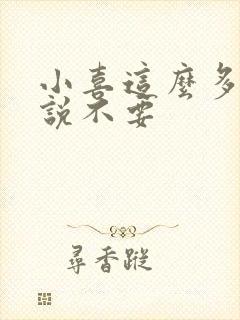 小喜這麼多
說不要
尋香蹤